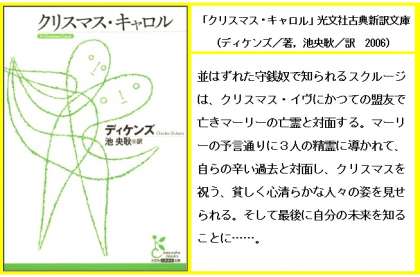 クリスマス・キャロル
ディケンズ
池 央耿・訳
「クリスマス・キャロル」光文社古典新訳文庫
(ディケンズ／著，池央耿／訳　2006)
並はずれた守銭奴で知られるスクルージ
は、クリスマス・イヴにかつての盟友で
亡きマーリーの亡霊と対面する。マーリ
ーの予言通りに３人の精霊に導かれて、
自らの辛い過去と対面し、クリスマスを
祝う、貧しく心清らかな人々の姿を見せ
られる。そして最後に自分の未来を知る
ことに……。